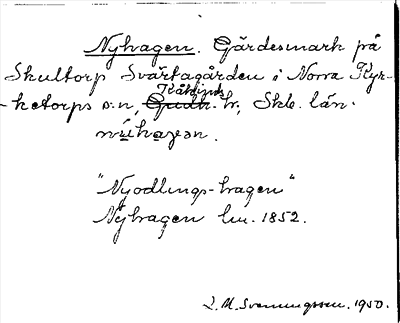 Nyhagen. Gärdesmark på
Skultorp Svärtagården i Norra Kyr-
-ketorps s:n, Kåkinds hr, Skb. län.
nýhagen.
"Nyodlings-hagen"
Nyhagen lm. 1852.
L. M. Svenungsson. 1950.